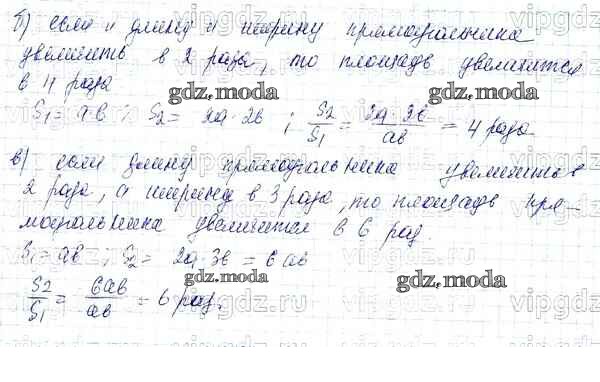 б) если и длину и ширину прямоугольника
увеличить в 2 раза, то площадь увеличится
в 4 раза
S₁ = ab ; S₂ = 2a · 2b ; S₂/S₁ = 2a · 2b/ab = 4 раза
в) если длину прямоугольника увеличить в
2 раза, а ширину в 3 раза, то площадь пря-
моугольника увеличится в 6 раз.
S₁ = ab ; S₂ = 2a · 3b = 6 ab
S₂/S₁ = 6ab/ab = 6 раз.
gdz.moda
gdz.moda
gdz.moda
gdz.moda
vipgdz.ru
vipgdz.ru
vipgdz.ru